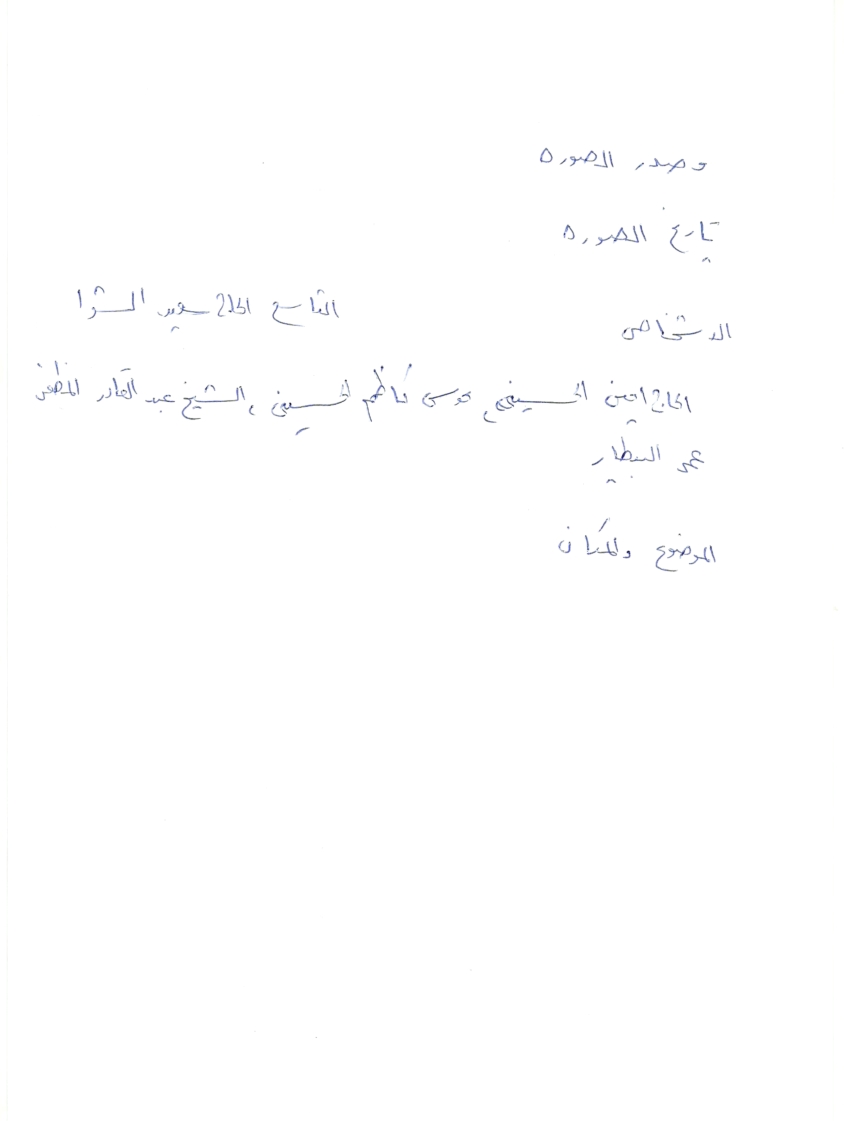 مصدر الصوره
تاريخ الصوره
التاسع الحاج سعيد الشوا
الاشخاص
الحاج امين الحسيني, موسى كاظم الحسيني, الشيخ عبد القادر المظفر
عمر البيطار
الموضوع والمكان